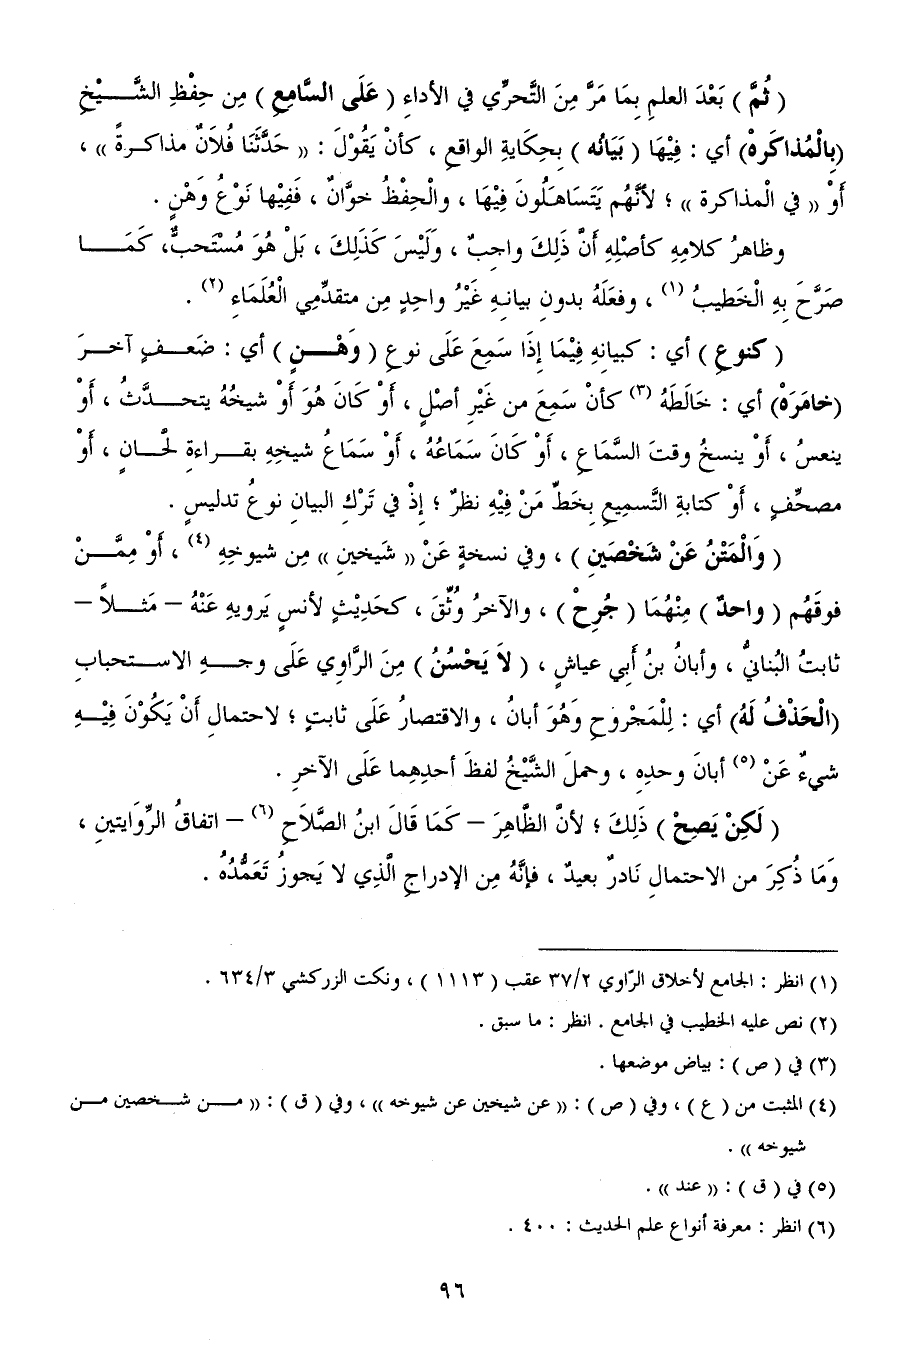 ( ثُمَّ ) بَعْدَ العلمِ بِمَا مَرَّ مِنَ التَّحرِّي في الأداءِ ( عَلَى السَّامعِ ) مِن حِفْظِ الشَّيْخِ
(بِالْمُذاكَرهْ) أي : فِيْهَا ( بَيَانُه ) بحِكَايةِ الواقعِ ، كأنْ يَقُوْلَ : (( حَدَّثَنَا فُلاَنٌ مذاكرةً )) ،
أوْ (( في الْمذاكرة )) ؛ لأنَّهُم يَتَساهَلُونَ فِيْهَا ، والْحِفْظُ خوَّانٌ ، فَفِيْها نَوْعُ وَهْنٍ .
وظاهرُ كلامِهِ كأصْلِهِ أنَّ ذَلِكَ واجبٌ ، وَلَيْسَ كَذَلِكَ ، بَلْ هُوَ مُسْتَحبٌّ، كَمَا
صَرَّحَ بِهِ الْخَطيبُ (١) ، وفعَلَهُ بدونِ بيانِهِ غَيْرُ واحدٍ مِن متقدِّمي الْعُلَمَاءِ (٢) .
( كنوعِ ) أي : كبيانِهِ فِيْمَا إذَا سَمِعَ عَلَى نوعِ ( وَهْنٍ ) أي : ضَعفٍ آخرَ
(خامَرَهْ) أي : خَالَطَهُ (٣) كأنْ سَمِعَ من غَيْرِ أصْلٍ ، أوْ كَانَ هُوَ أوْ شيخُهُ يتحدَّثُ ، أوْ
ينعسُ ، أوْ ينسخُ وقتَ السَّماعِ ، أوْ كَانَ سَمَاعُهُ ، أوْ سَماعُ شيخِهِ بقراءةِ لَحَّانٍ ، أوْ
مصحِّفٍ ، أوْ كتابةِ التَّسميعِ بِخَطِّ مَنْ فِيْهِ نظرٌ ؛ إذْ في تَرْكِ البيانِ نوعُ تدليسٍ .
( وَالْمَتْنُ عَنْ شَخْصَينِ ) ، وفي نسخةٍ عَنْ (( شَيخينِ )) مِن شيوخِهِ (٤) ، أوْ مِمَّنْ
فوقَهُم ( واحدٌ ) مِنْهُمَا ( جُرِحْ ) ، والآخرُ وُثِّقَ ، كحَدِيْثٍ لأنسٍ يَرويهِ عَنْهُ – مَثلاً –
ثابتُ البُنانيُّ ، وأبانُ بنُ أبي عياشٍ ، ( لاَ يَحْسُنُ ) مِنَ الرَّاوي عَلَى وجهِ الاستحبابِ
(الْحَذْفُ لَهُ) أي : لِلْمَجْروحِ وَهُوَ أبانُ ، والاقتصارُ عَلَى ثابتٍ ؛ لاحتمالِ أنْ يَكُوْنَ فِيْهِ
شيءٌ عَنْ (٥) أبانَ وحدِهِ ، وحملَ الشَّيْخُ لفظَ أحدِهِما عَلَى الآخرِ .
( لَكِنْ يَصِحْ ) ذَلِكَ ؛ لأنَّ الظَّاهِرَ – كَمَا قَالَ ابنُ الصَّلاَحِ (٦) – اتفاقُ الرِّوايتينِ ،
وَمَا ذُكِرَ من الاحتمالِ نَادرٌ بعيدٌ ، فإنَّهُ مِن الإدراجِ الَّذِي لا يَجوزُ تَعَمُّدُهُ .
(١) انظر : الجامع لأخلاق الرّاوي ٣٧/٢ عقب ( ١١١٣ ) ، ونكت الزركشي ٦٣٤/٣ .
(٢) نص عليه الخطيب في الجامع . انظر : ما سبق .
(٣) في ( ص ) : بياض موضعها .
(٤) المثبت من ( ع ) ، وفي ( ص ) : (( عن شيخين عن شيوخه )) ، وفي ( ق ) : (( من شخصين من
شيوخه )) .
(٥) في ( ق ) : (( عند )) .
(٦) انظر : معرفة أنواع علم الحديث : ٤٠٠ .
٩٦